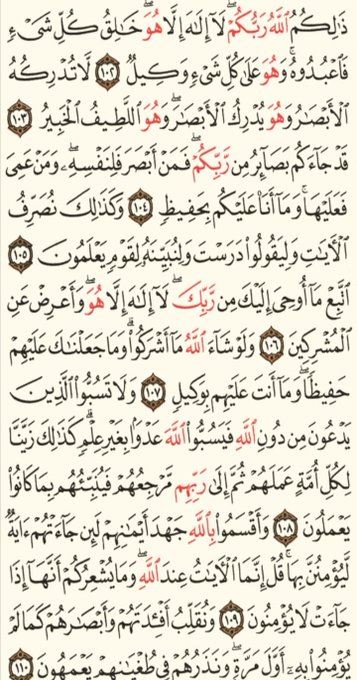 ذَٰلِكُمُ ٱللَّهُ رَبُّكُمْۖ لَآ إِلَٰهَ إِلَّا هُوَۖ خَٰلِقُ كُلِّ شَىْءٍ
فَٱعْبُدُوهُۚ وَهُوَ عَلَىٰ كُلِّ شَىْءٍ وَكِيلٌ ١٠٢ لَّا تُدْرِكُهُ
ٱلْأَبْصَٰرُ وَهُوَ يُدْرِكُ ٱلْأَبْصَٰرَۖ وَهُوَ ٱللَّطِيفُ ٱلْخَبِيرُ ١٠٣
قَدْ جَآءَكُم بَصَآئِرُ مِن رَّبِّكُمْۖ فَمَنْ أَبْصَرَ فَلِنَفْسِهِۦۖ وَمَنْ عَمِىَ
فَعَلَيْهَاۚ وَمَآ أَنَا۠ عَلَيْكُم بِحَفِيظٍ ١٠٤ وَكَذَٰلِكَ نُصَرِّفُ
ٱلْءَايَٰتِ وَلِيَقُولُوا۟ دَرَسْتَ وَلِنُبَيِّنَهُۥ لِقَوْمٍ يَعْلَمُونَ ١٠٥
ٱتَّبِعْ مَآ أُوحِىَ إِلَيْكَ مِن رَّبِّكَۖ لَآ إِلَٰهَ إِلَّا هُوَۖ وَأَعْرِضْ عَنِ
ٱلْمُشْرِكِينَ ١٠٦ وَلَوْ شَآءَ ٱللَّهُ مَآ أَشْرَكُوا۟ۗ وَمَا جَعَلْنَٰكَ عَلَيْهِمْ
حَفِيظًاۖ وَمَآ أَنتَ عَلَيْهِم بِوَكِيلٍ ١٠٧ وَلَا تَسُبُّوا۟ ٱلَّذِينَ
يَدْعُونَ مِن دُونِ ٱللَّهِ فَيَسُبُّوا۟ ٱللَّهَ عَدْوًۢا بِغَيْرِ عِلْمٍۗ كَذَٰلِكَ زَيَّنَّا
لِكُلِّ أُمَّةٍ عَمَلَهُمْ ثُمَّ إِلَىٰ رَبِّهِم مَّرْجِعُهُمْ فَيُنَبِّئُهُم بِمَا كَانُوا۟
يَعْمَلُونَ ١٠٨ وَأَقْسَمُوا۟ بِٱللَّهِ جَهْدَ أَيْمَٰنِهِمْ لَئِن جَآءَتْهُمْ ءَايَةٌ
لَّيُؤْمِنُنَّ بِهَاۚ قُلْ إِنَّمَا ٱلْءَايَٰتُ عِندَ ٱللَّهِۖ وَمَا يُشْعِرُكُمْ أَنَّهَآ إِذَا
جَآءَتْ لَا يُؤْمِنُونَ ١٠٩ وَنُقَلِّبُ أَفْـِٔدَتَهُمْ وَأَبْصَٰرَهُمْ كَمَا لَمْ
يُؤْمِنُوا۟ بِهِۦٓ أَوَّلَ مَرَّةٍ وَنَذَرُهُمْ فِى طُغْيَٰنِهِمْ يَعْمَهُونَ ١١٠